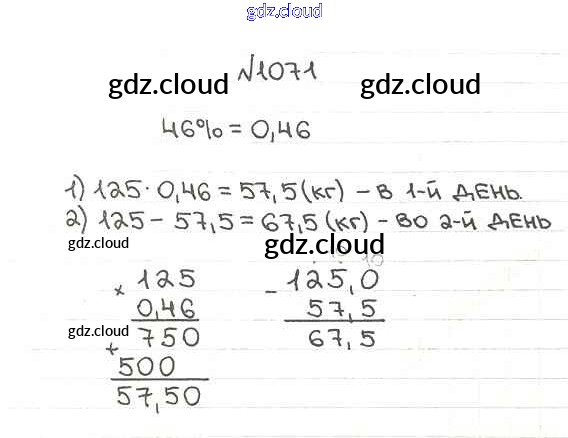 gdz.cloud
№1071
gdz.cloud gdz.cloud
46% = 0,46
1) 125 · 0,46 = 57,5 (кг) – в 1-й день.
2) 125 – 57,5 = 67,5 (кг) – во 2-й день
gdz.cloud gdz.cloud
10
× 125 – 125,0
0,46 57,5
gdz.cloud 750 67,5
+
500
57,50